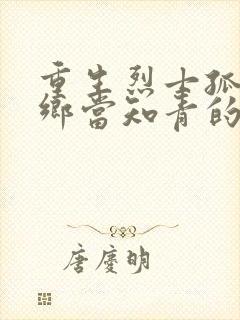 重生烈士孤
鄉當知青的
唐慶明